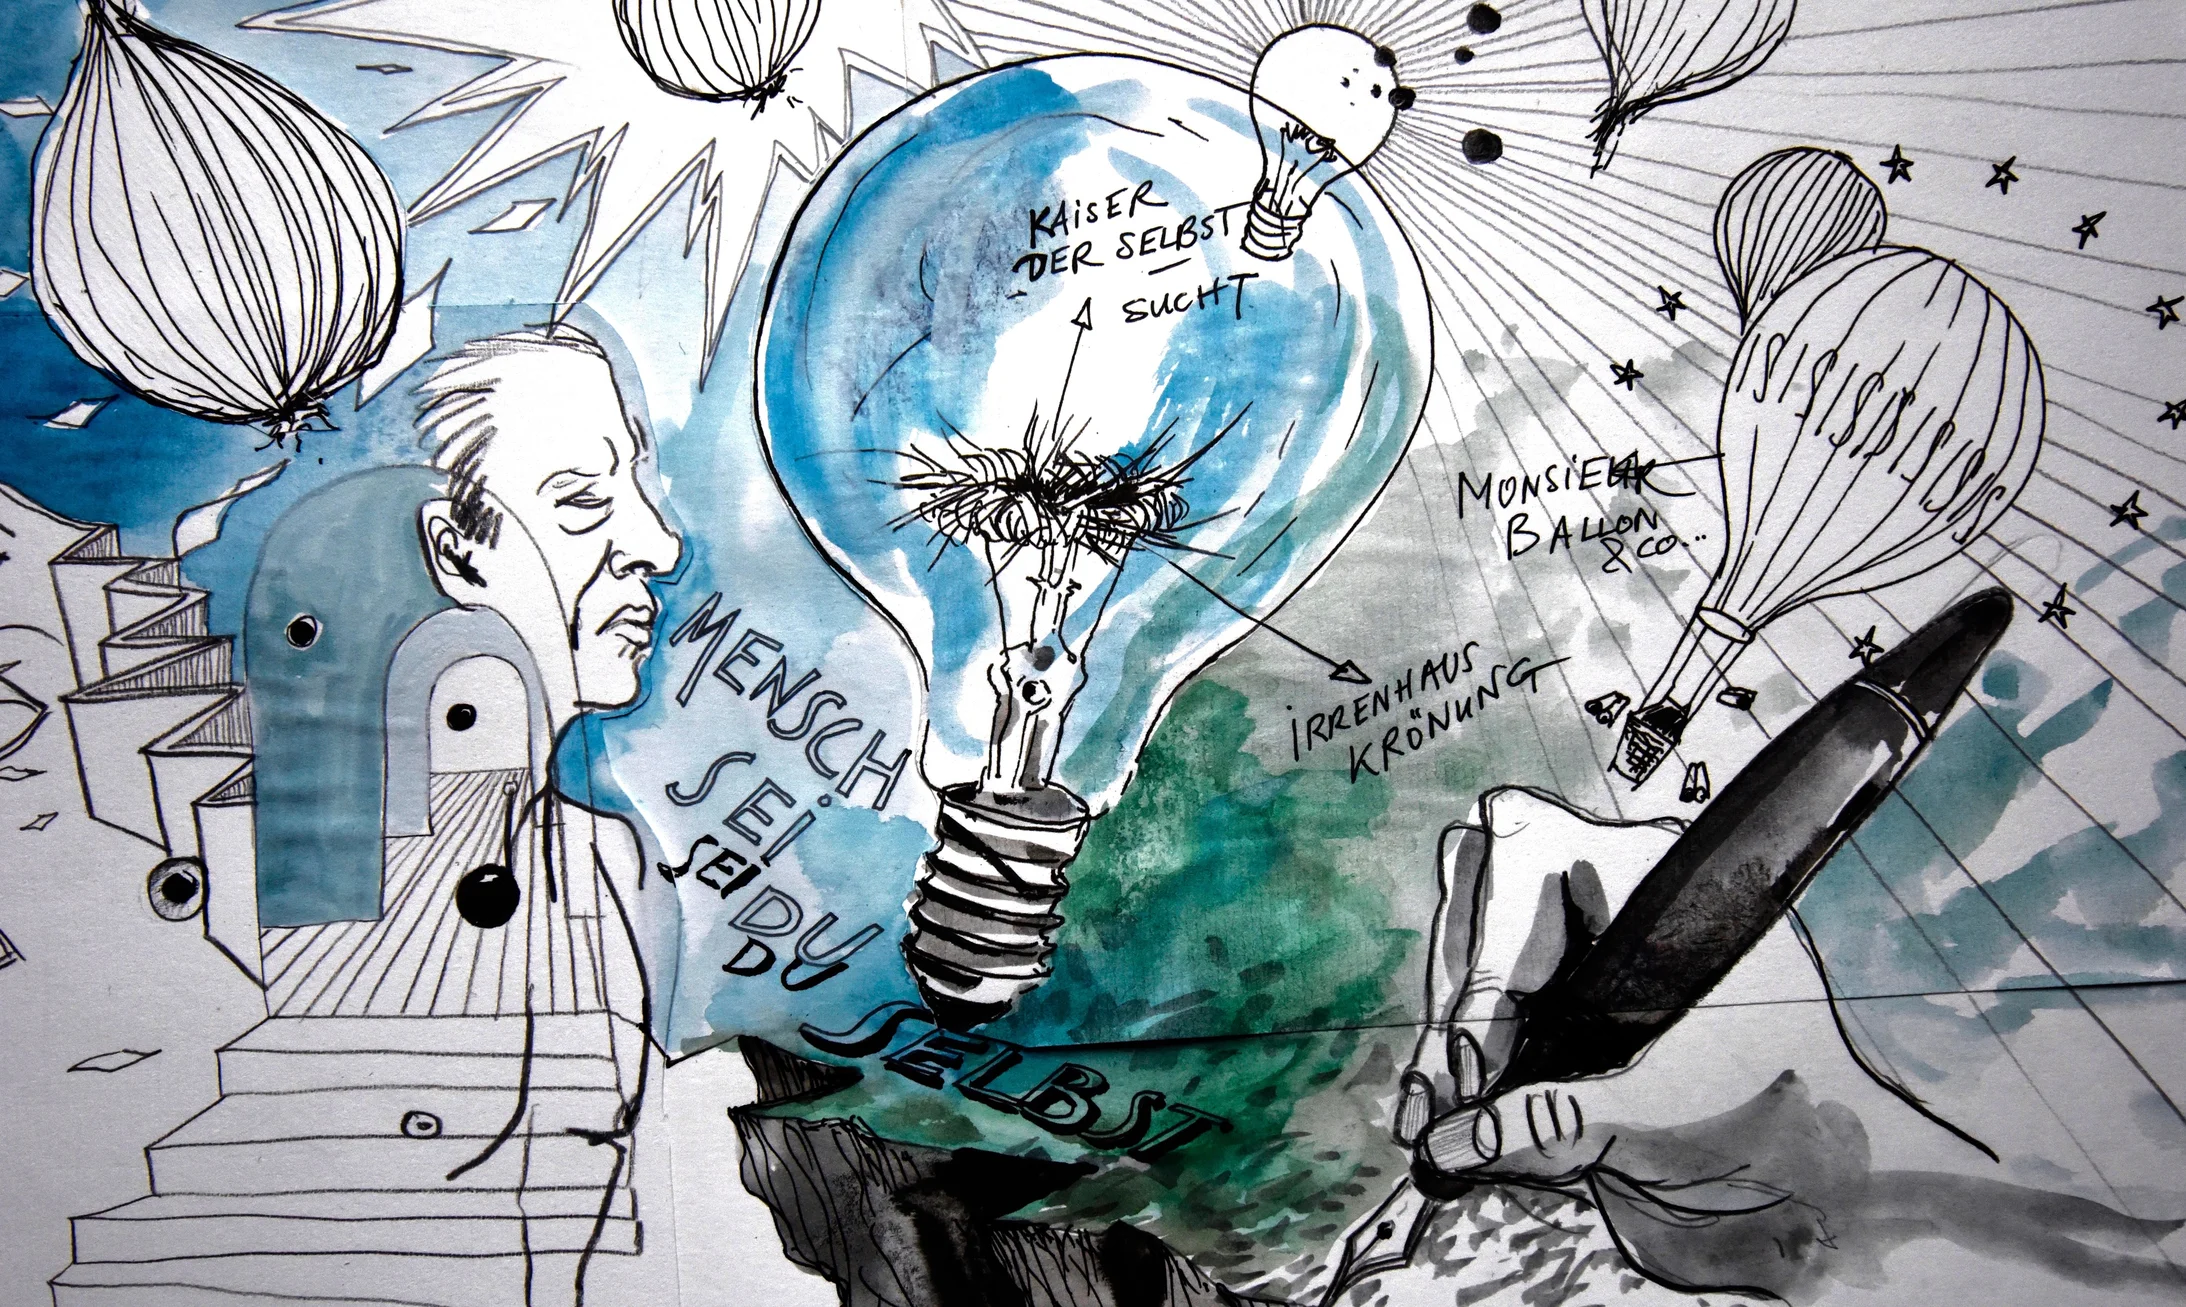 KAiSER
DER SELBST-
SUCHT
MONSiEUR
BALLON
& CO...
iRRENHAUS
KRÖNUNG
MENSCH
SEi
SEI
DU
DU
SELBST